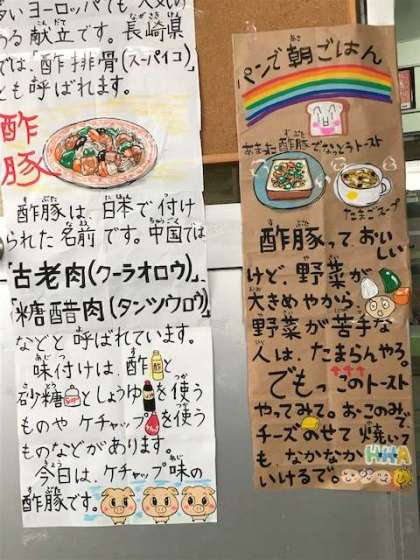 多いヨーロッパでも人気の
ある献立です。長崎県
では、「酢排骨(スーパイコ)」
とも呼ばれます。
酢豚
酢豚は、日本で付け
られた名前です。中国では
「古老肉(クーラオロウ)」、
「糖醋肉(タンツウロウ)」
などと呼ばれています。
味付けは、酢と
砂糖としょうゆを使う
ものやケチャップを使う
ものなどがあります。
今日は、ケチャップ味の
酢豚です。
パンで朝ごはん
あまった酢豚でなっとうトースト
たまごスープ
酢豚って、おいしい
けど、野菜が
大きめやから、
野菜が苦手な
人は、たまらんやろ。
でもっこのトースト
やってみて。おこのみで、
チーズのせて焼いて
も、なかなか
いけるで。